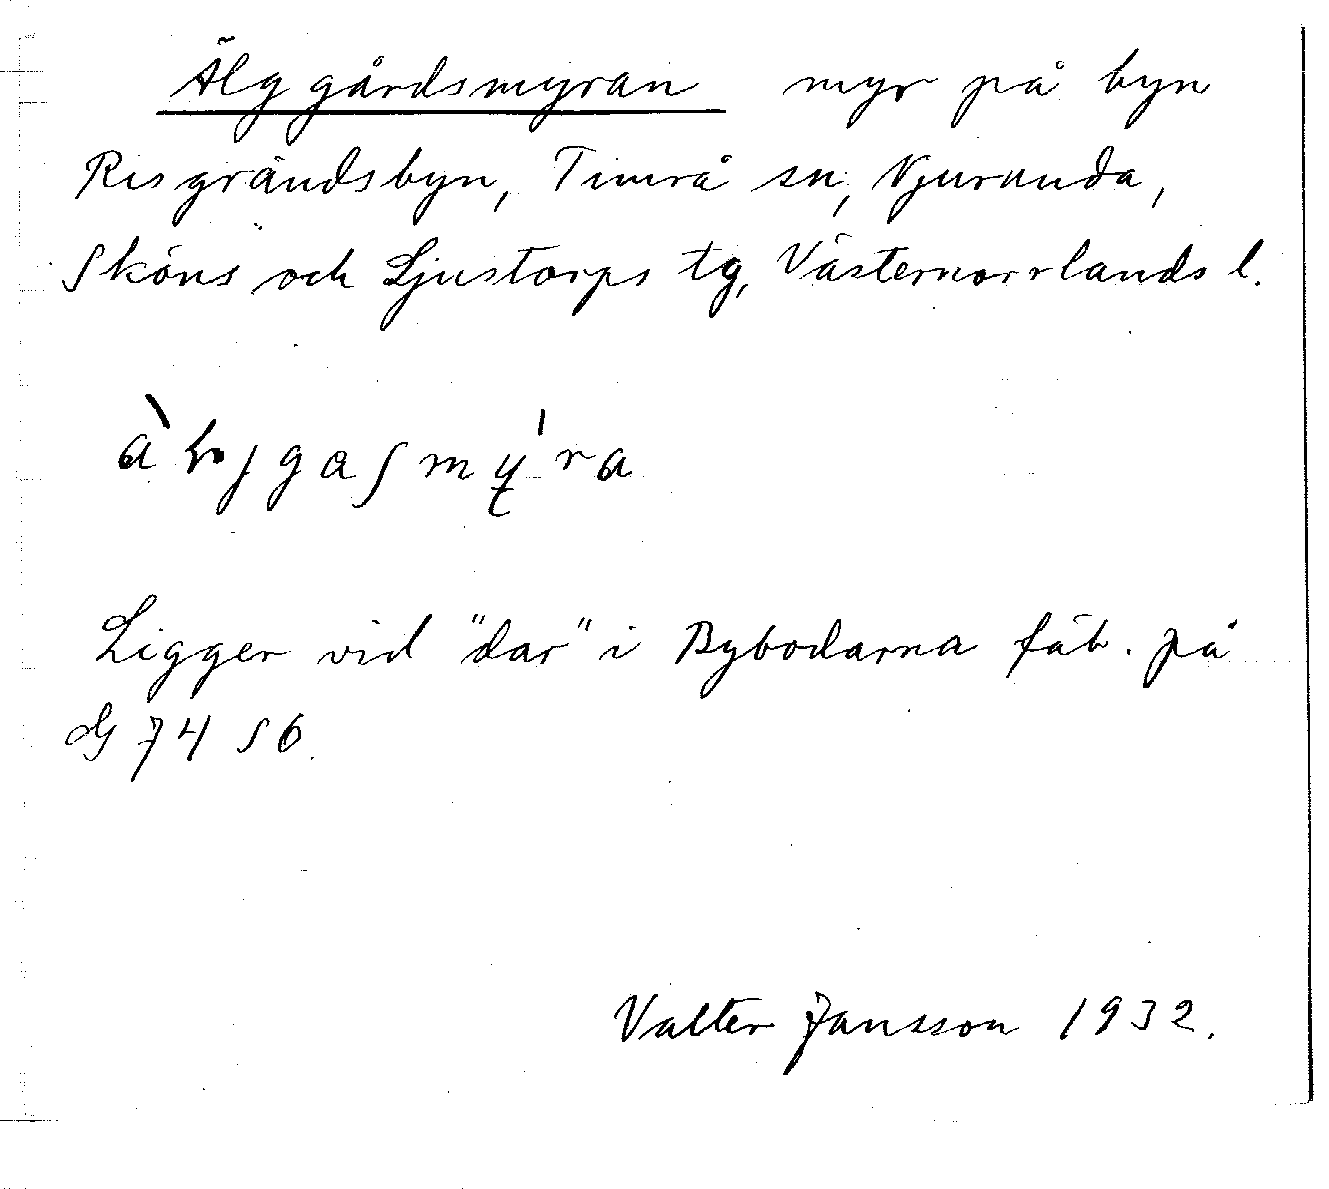 Älggårdsmyran myr på byn
Risgrändsbyn, Timrå sn, Njurunda,
Sköns och Ljustorps tg, Västernorrlands l.
Ligger vid "dar" i Bybodarna fäb. på
G 74 S6.
Valter Jansson 1932.